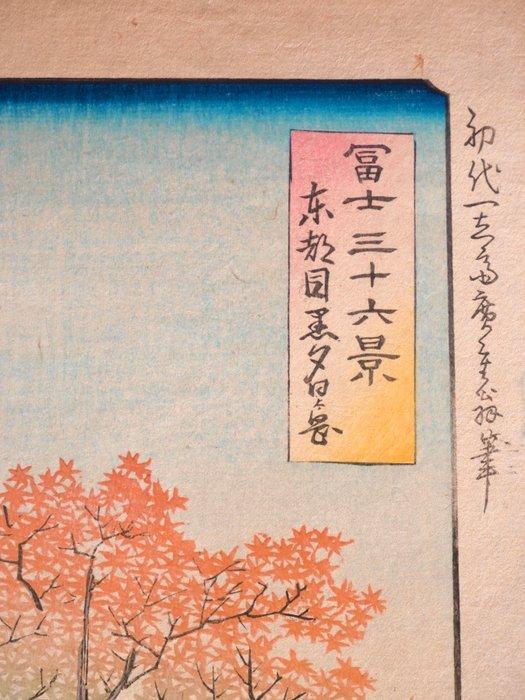 初代一立斎廣重翁筆
冨士三十六景
東都目黒夕日か岡